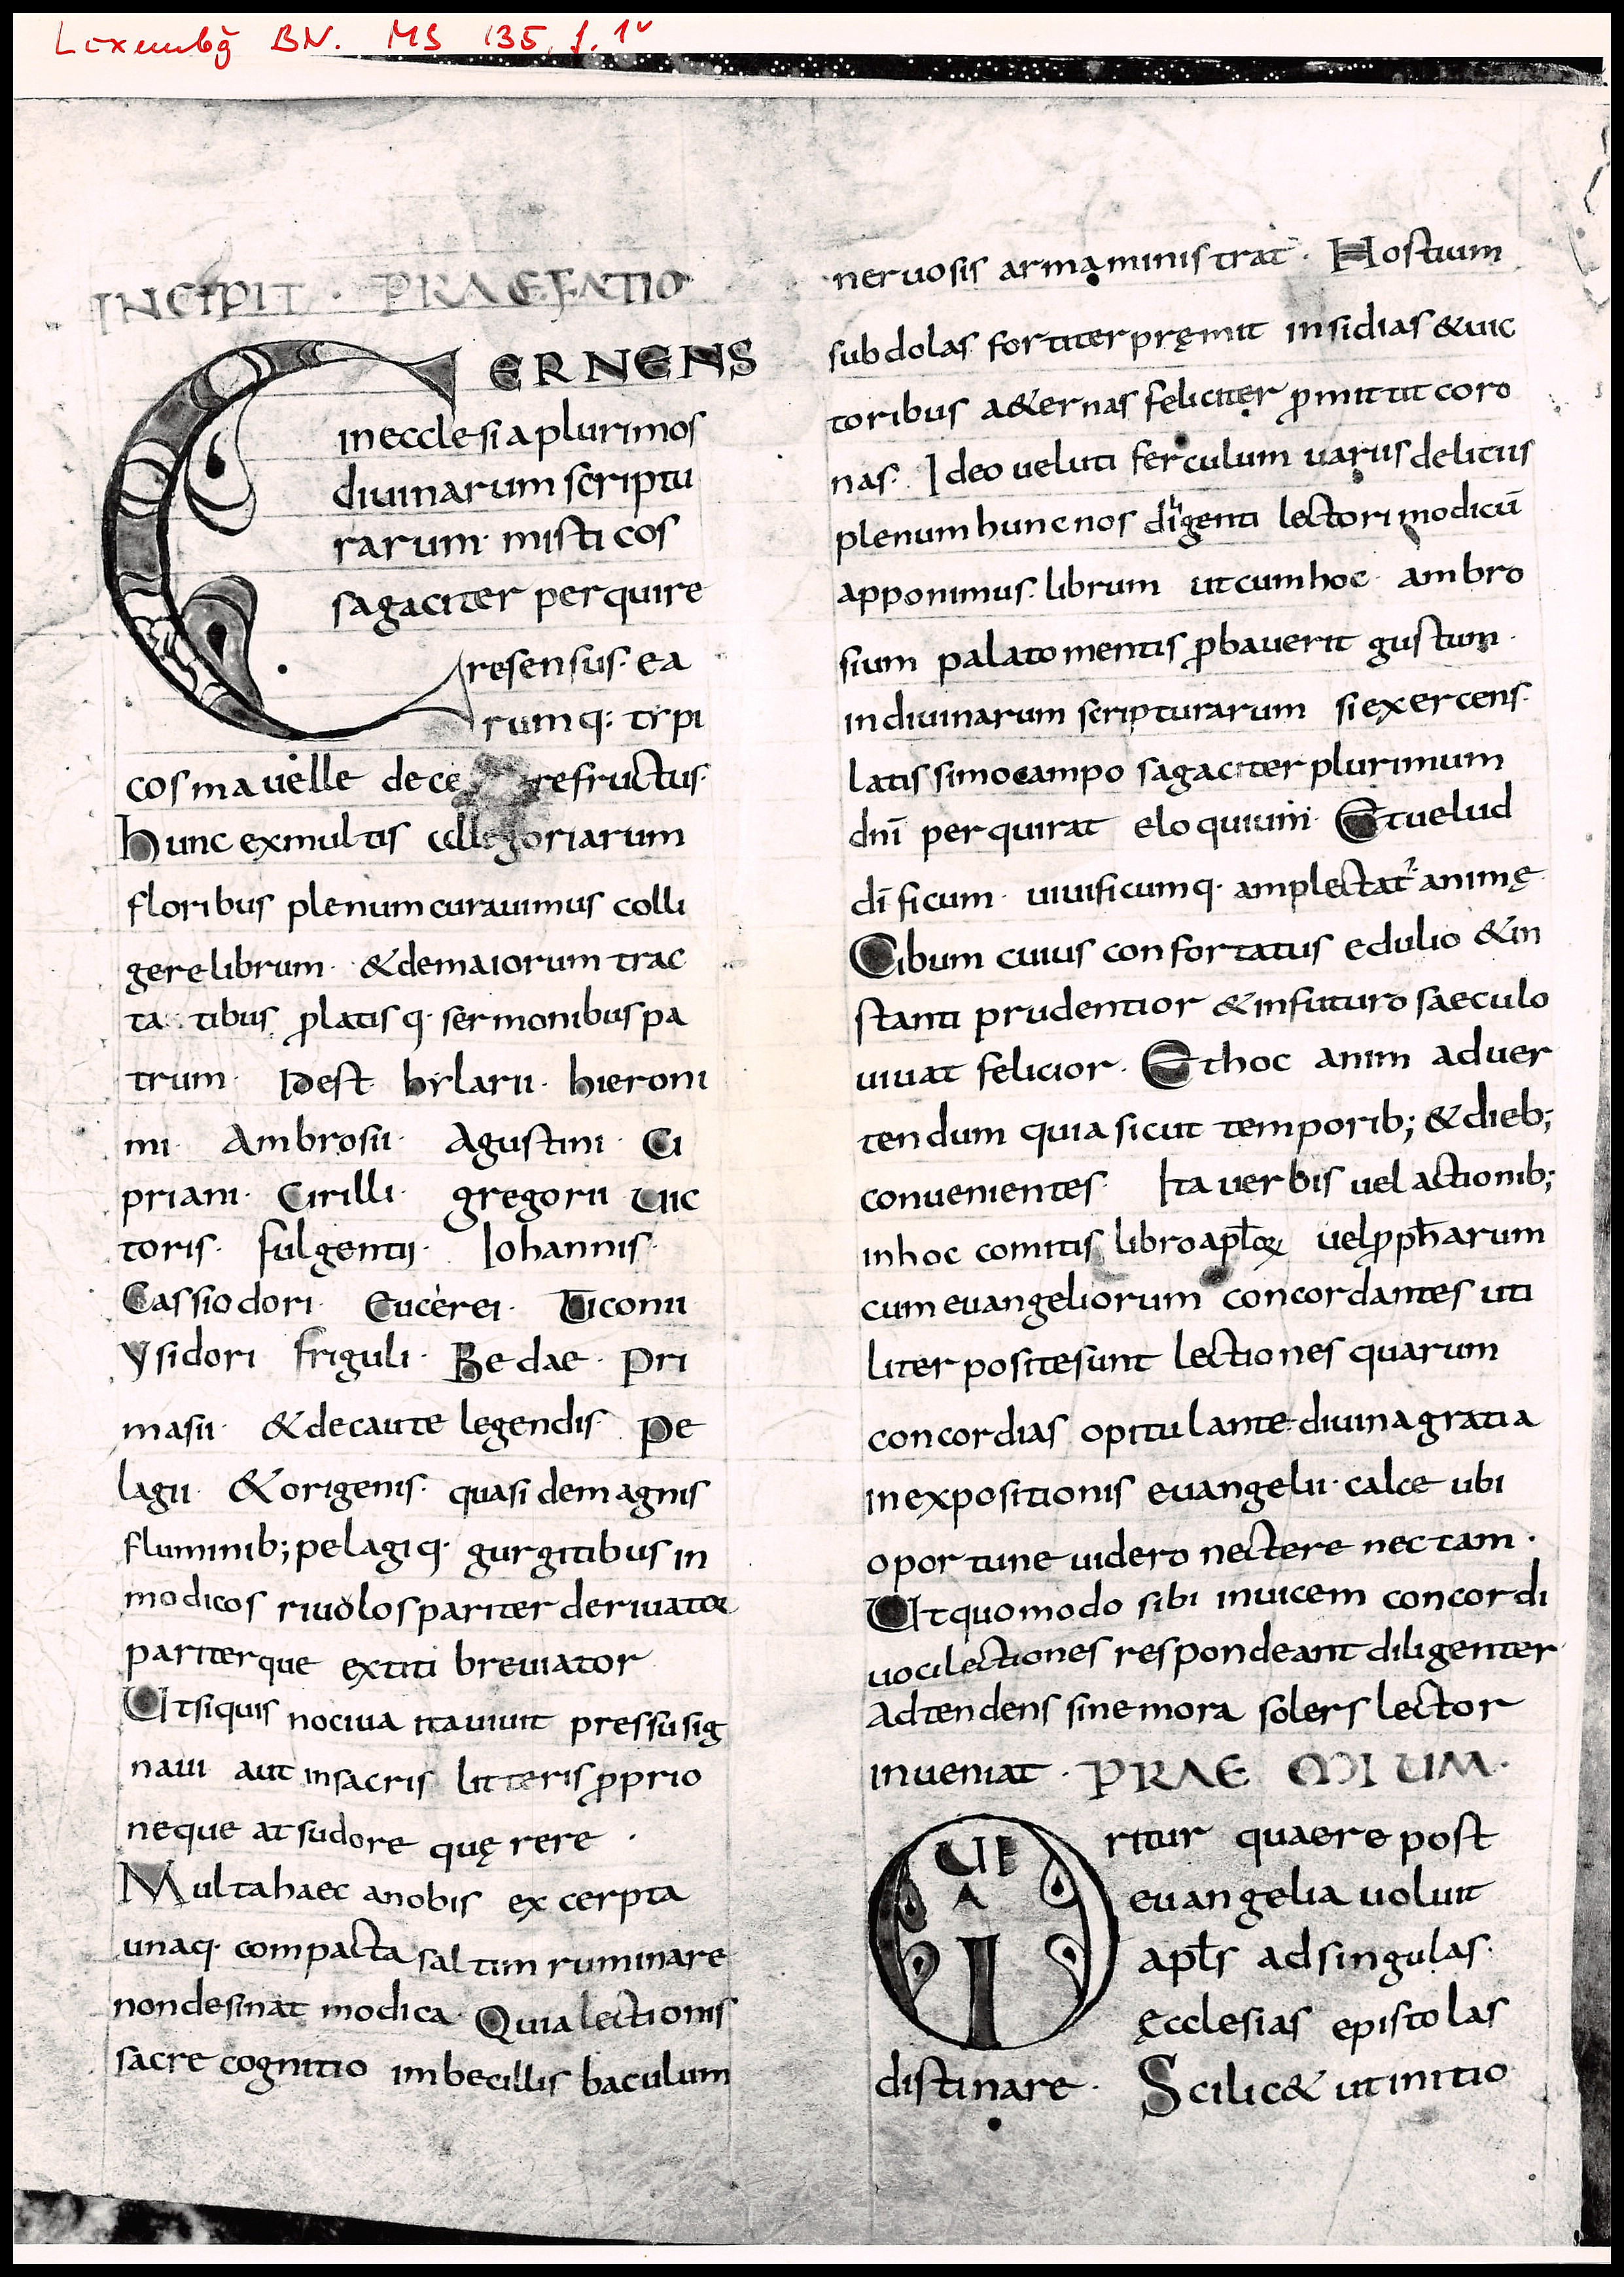 Luxemb͞g BN. MS 135, f. 1v
INCIPIT · PRAEFATIO
CERNENS
in ecclesia plurimos
diuinarum scriptu
rarum· misticos
sagaciter perquire
re sensus· ea
rumq: tÿpi
cos mauelle dece refructus·
hunc ex multis allegoriarum
floribus plenum curauimus colli
gere librum· & de maiorum trac
ta tibus ꝓlatisq· sermonibus pa
trum· Idest hẏlarii· hieroni
mi· Ambrosii· Agustini· Ci
priani· Cirilli· gregorii Uic
toris· fulgentij· Iohannis·
Cassiodori· Euċerei· Ticonii
Ysidori friguli· Bedae· Pri
masii· & de caute legendis· Pe
lagii· & origenis· quasi de magnis
fluminib; pelagiq· gurgitibus in
modicos riuolos pariter deriuatoꝝ
pariterque extiti breuiator
Ut siquis nociua ita uiuit pressus ig
naui aut in sacris litteris ꝓprio
neque at sudore quęrere ·
Multa haec a nobis excerpta
unaq· compacta saltim ruminare
non desinat modica· Quia lectionis
sacre cognitio imbecillis baculum
neruosis arma ministrat· Hostium
subdolas fortiter pręmit insidias & uic
toribus a&ernas feliciter ꝓmittit coro
nas· Ideo ueluti ferculum uariis delitiis
plenum hunc nos diligenti lectori modicū
apponimus· librum ut cum hoc· ambro
sium palato mentis ꝓbauerit gustum·
in diuinarum scripturarum si exercens·
latissimo campo sagaciter plurimum
dn̄i perquirat eloquium· Et uelud
dī ficum· uiuificumq· amplectat᾽ animę
Cibum cuius confortatus edulio & in
stanti prudentior & in futuro saeculo
uiuat felicior· Et hoc anim aduer
tendum quia sicut temporib; & dieb;
conuenientes· Ita uerbis uel actionib;
in hoc comitis libro apl̄oꝝ uel ꝓph̄arum
cum euangeliorum concordantes uti
liter posite sunt lectiones quarum
concordias opitulante diuina gratia
in expositionis euangelii· calce ubi
oportune uidero nectere nec tam·
Ut quomodo sibi inuicem concordi
uoci lectiones respondeant diligenter
Adtendens sine mora solers lector
inueniat· PRAEMIUM·
ritur quaere post
euangelia uoluit
apl̄s ad singulas·
ęcclesias epistolas
distinare· Scilic& ut initio